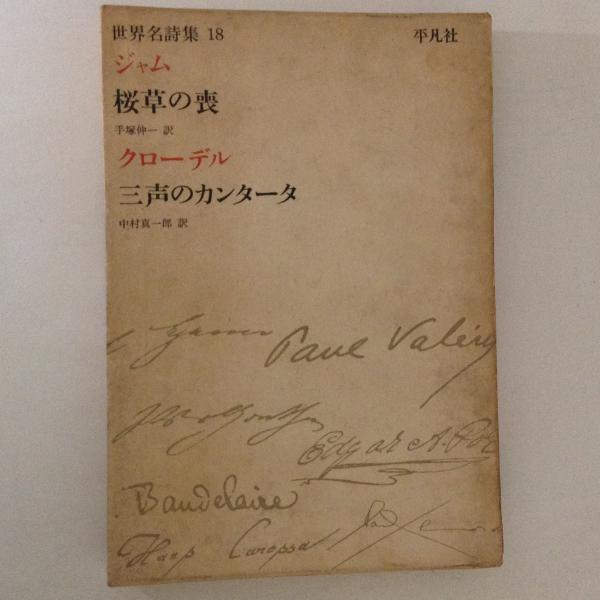 世界名詩集 18
平凡社
ジャム
桜草の喪
手塚伸一 訳
クローデル
三声のカンタータ
中村真一郎 訳
Paul Valéry
Edgar A. Poe
Baudelaire
Hans Carossa